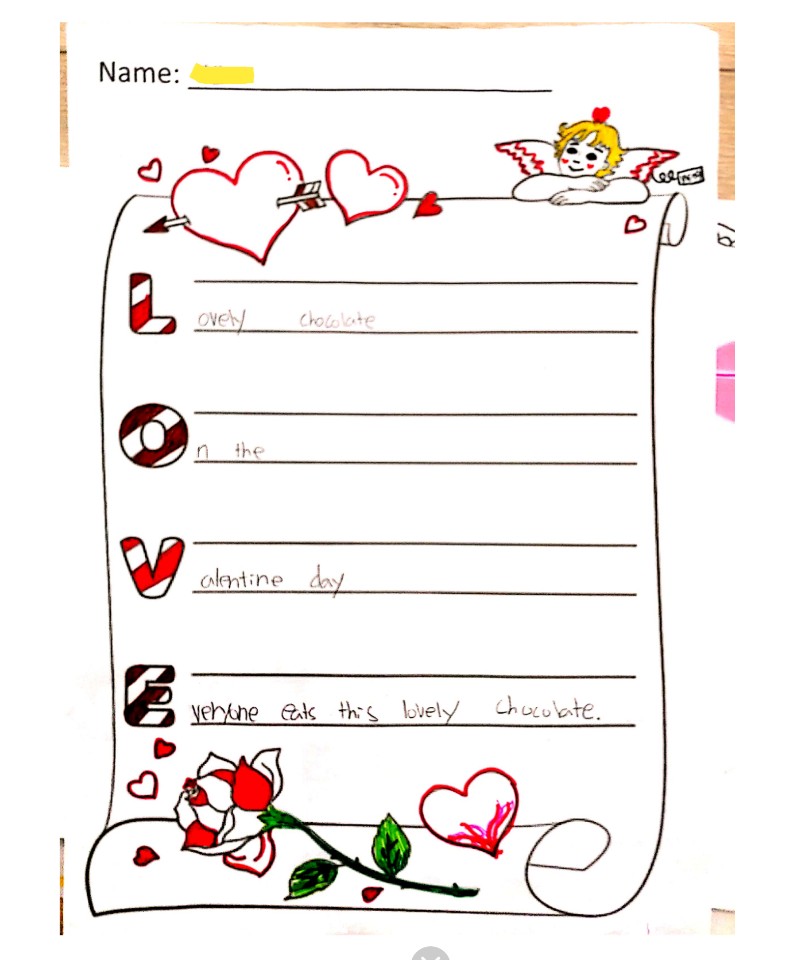 Name:
Lovely chocolate
On the
Valentine day
Everyone eats this lovely chocolate.